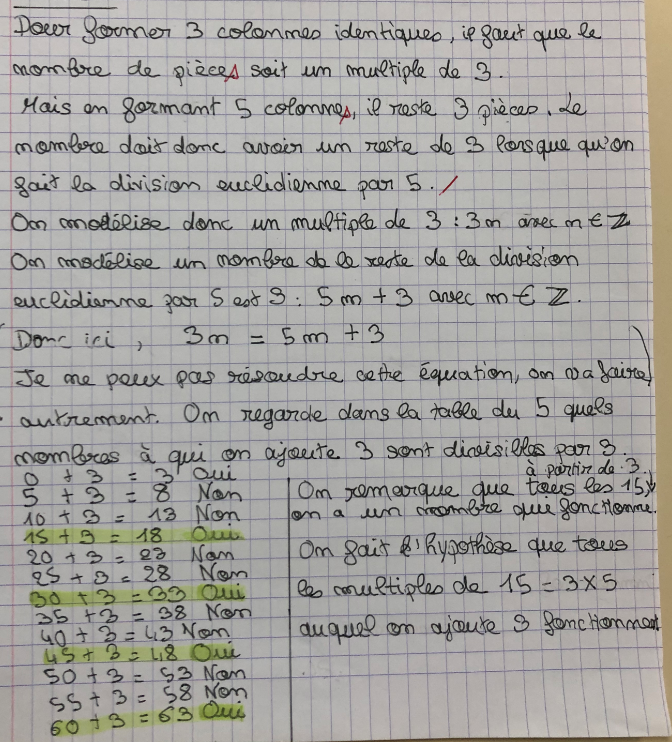 Pour former 3 colonnes identiques, il faut que le
nombre de pièces soit un multiple de 3.
Mais en formant 5 colonnes, il reste 3 pièces. Le
nombre doit donc avoir un reste de 3 lorsque qu'on
fait la division euclidienne par 5.
On modélise donc un multiple de 3 : 3n avec n ∈ ℤ
On modélise un nombre de le reste de la division
euclidienne par 5 est 3 : 5m + 3 avec m ∈ ℤ.
Donc ici, 3n = 5m + 3
Je ne peux pas résoudre cette équation, on va faire
autrement. On regarde dans la table du 5 quels
nombres à qui on ajoute 3 sont divisibles par 3.
0 + 3 = 3 Oui
5 + 3 = 8 Non
10 + 3 = 13 Non
15 + 3 = 18 Oui
20 + 3 = 23 Non
25 + 3 = 28 Non
30 + 3 = 33 Oui
35 + 3 = 38 Non
40 + 3 = 43 Non
45 + 3 = 48 Oui
50 + 3 = 53 Non
55 + 3 = 58 Non
60 + 3 = 63 Oui
à partir de 3
On remarque que tous les 15,
on a un nombre qui fonctionne.
On fait l'hypothèse que tous
les multiples de 15 = 3×5
auquel on ajoute 3 fonctionnent